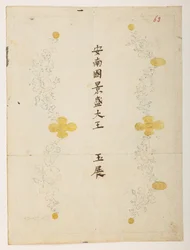 安南國景盛大王 玉展